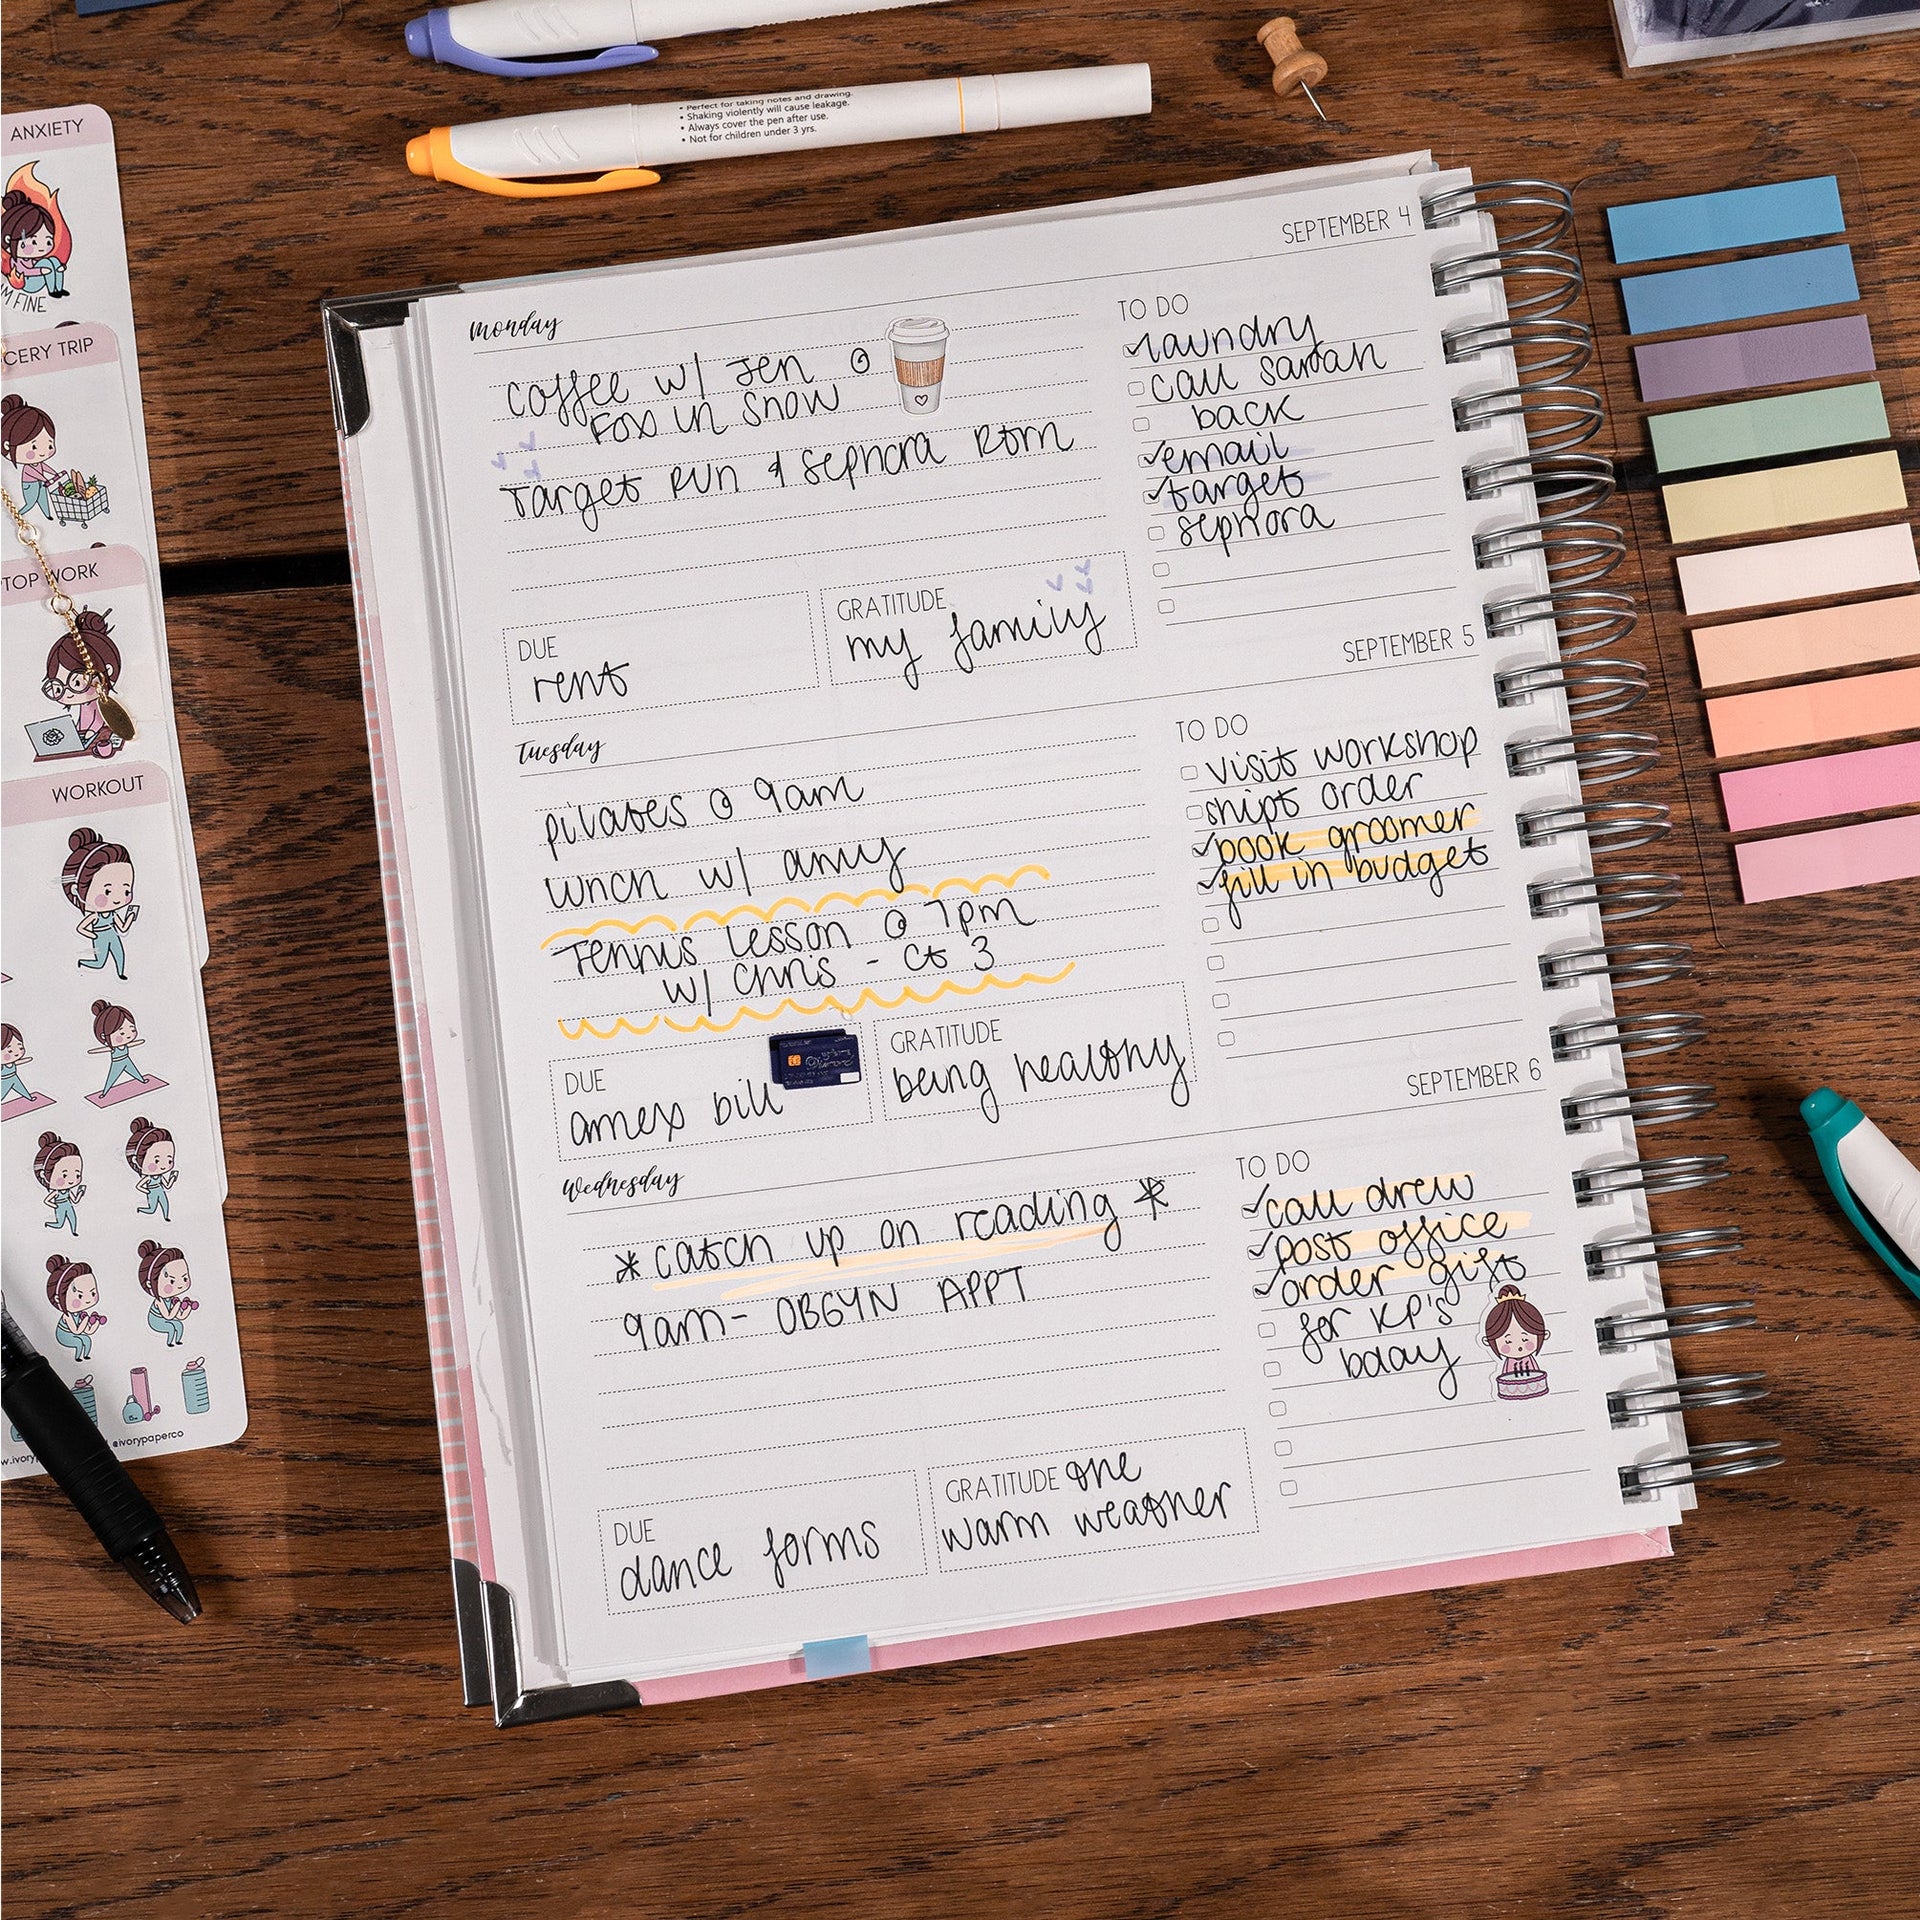 • Perfect for taking notes and drawing.
• Shaking violently will cause leakage.
• Always cover the pen after use.
• Not for children under 3 yrs.
ANXIETY
I'M FINE
CERY TRIP
TOP WORK
WORKOUT
@ivorypaperco
SEPTEMBER 4
Monday
coffee w/ Jen @
Fox in Snow
Target run & sephora Rtrn
DUE
rent
GRATITUDE
my family
TO DO
laundry
call sarah
back
email
target
sephora
SEPTEMBER 5
Tuesday
pilates @ 9am
lunch w/ amy
Tennis lesson @ 7pm
w/ Chris - Ct 3
DUE
amex bill
GRATITUDE
being healthy
TO DO
visit workshop
shipt order
book groomer
fill in budget
SEPTEMBER 6
Wednesday
* catch up on reading *
9am - OBGYN APPT
DUE
dance forms
GRATITUDE the
warm weather
TO DO
call drew
post office
order gift
for KP's
bday